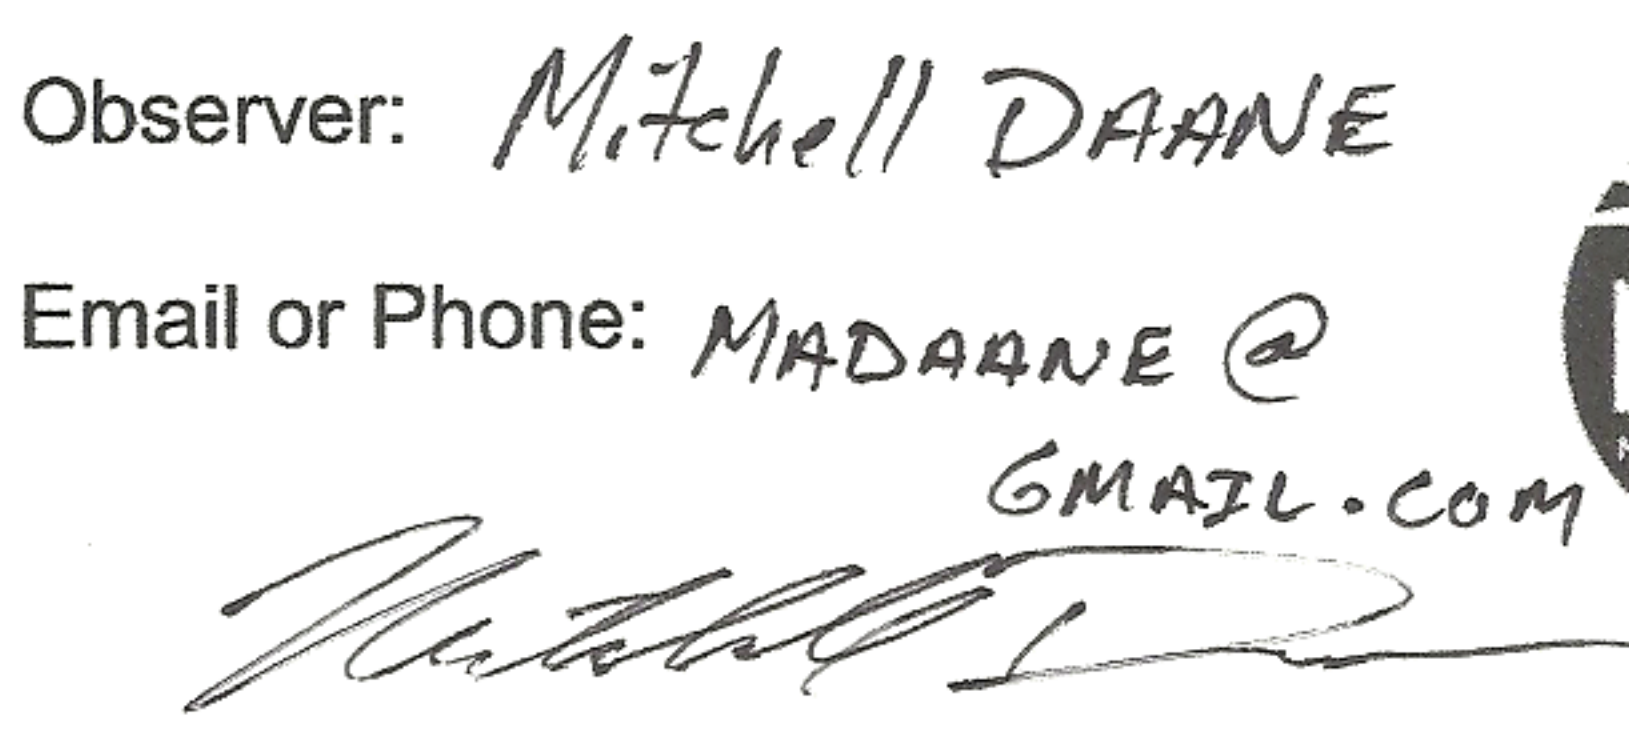 Observer: Mitchell DAANE
Email or Phone: MADAANE @
GMAIL.COM
Mitchell D